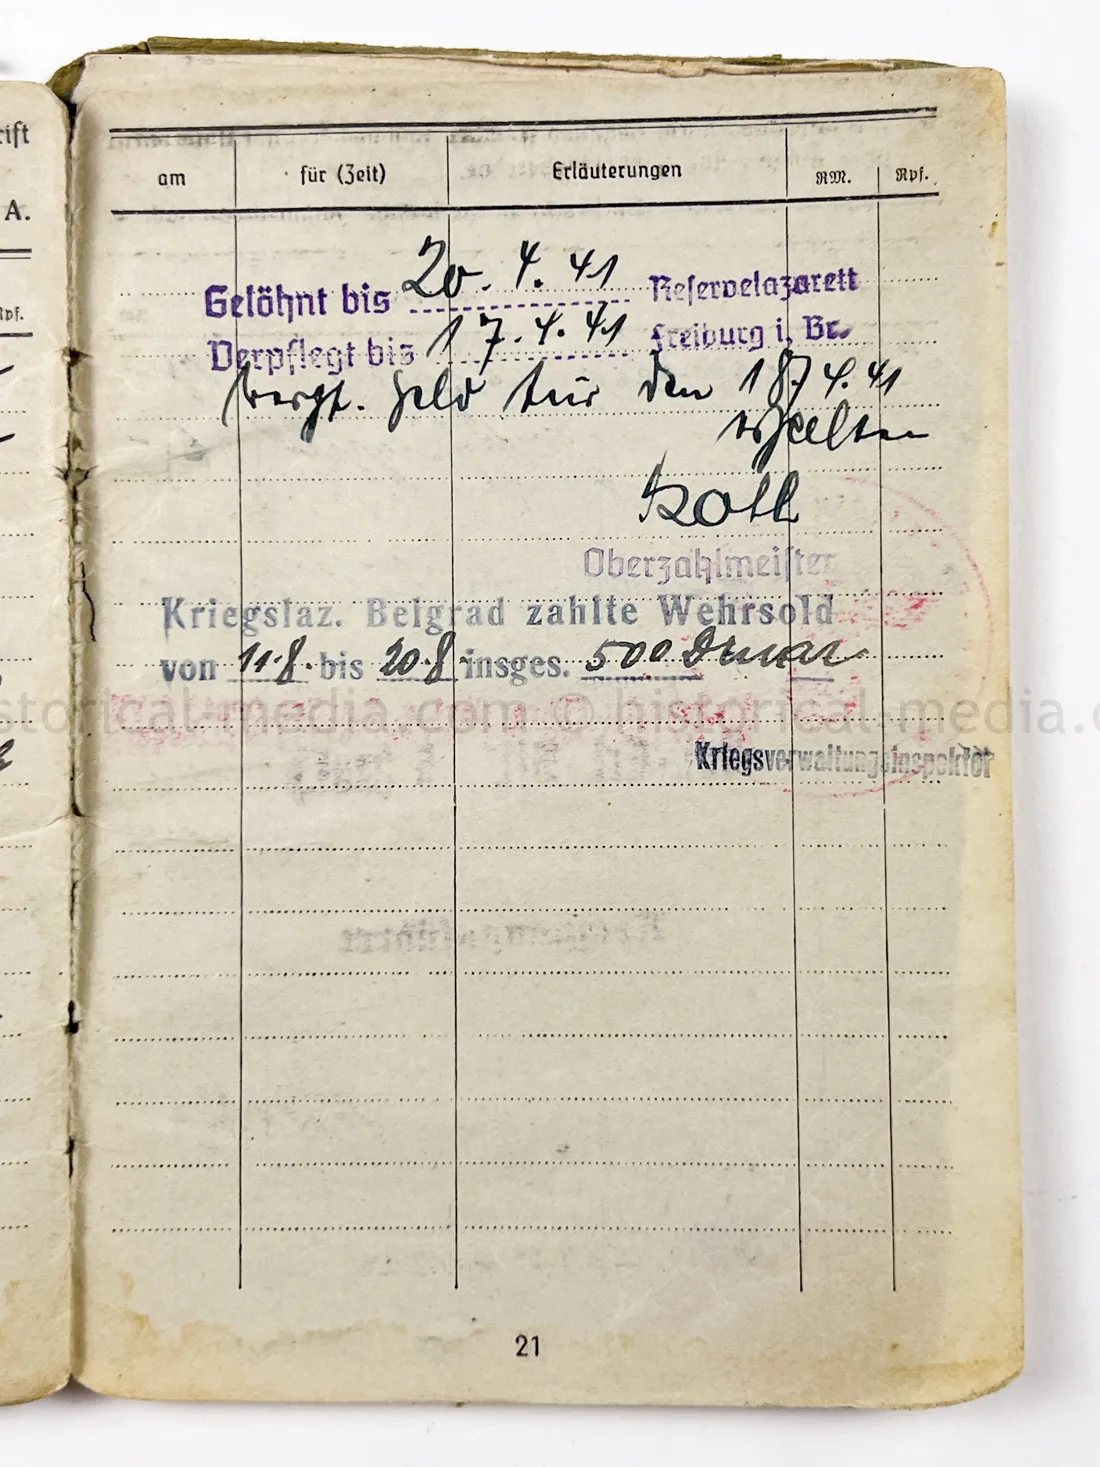 rift
A.
Rpf.
am für (Zeit) Erläuterungen RM. Rpf.
Gelöhnt bis 20.4.41 Reservelazarett
Verpflegt bis 17.4.41 Freiburg i. Br.
Geld für den 18.4.41
erhalten
Oberzahlmeister
Kriegslaz. Belgrad zahlte Wehrsold
von 11.8. bis 20.8 insges. 500 Dinar
storical-media.com © historical-media.c
Kriegsverwaltungsinspektor
21